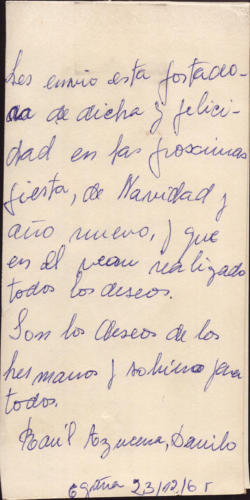 Les envio esta fostado-
ra de dicha y felici-
dad en las proximas
fiesta, de Navidad y
año nuevo, y que
en el vean realizado
todos los deseos.
Son los deseos de los
hermanos y sobino para
todos.
Raúl Azucena, Danilo
España 23/12/6